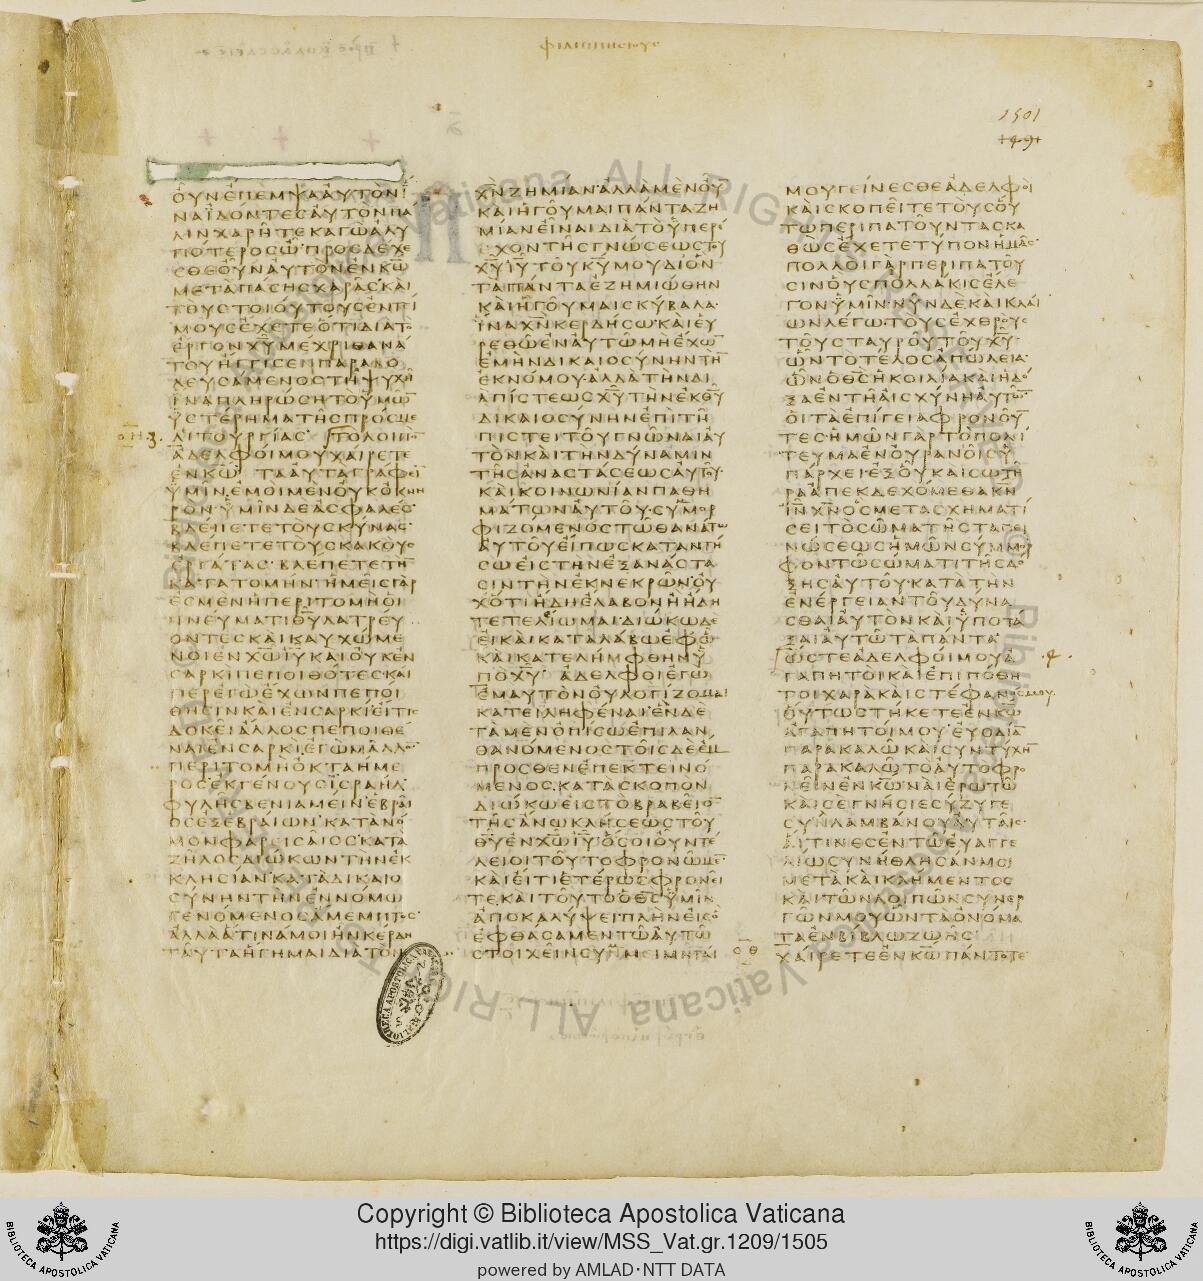 ΦΙΛΙΠΠΗΣΙΟΥΣ
1501
ΟΥΝΕΠΕΜΨΑΑΥΤΟΝΙ
ΝΑΪΔΟΝΤΕΣΑΥΤΟΝΠΑ
ΛΙΝΧΑΡΗΤΕΚΑΓΩΑΛΥ
ΠΟΤΕΡΟΣΩ ΠΡΟΣΔΕΧΕ
ΣΘΕΟΥΝΑΥΤΟΝΕΝΚΩ
ΜΕΤΑΠΑΣΗΣΧΑΡΑΣΚΑΙ
ΤΟΥΣΤΟΙΟΥΤΟΥΣΕΝΤΙ
ΜΟΥΣΕΧΕΤΕΟΤΙΔΙΑΤΟ
ΕΡΓΟΝΧΥΜΕΧΡΙΘΑΝΑ
ΤΟΥΗΓΓΙΣΕΝΠΑΡΑΒΟ
ΛΕΥΣΑΜΕΝΟΣΤΗΨΥΧΗ
ΙΝΑΠΛΗΡΩΣΗΤΟΥΜΩ
ΥΣΤΕΡΗΜΑΤΗΣΠΡΟΣΜΕ
ΛΙΤΟΥΡΓΙΑΣ ΤΟΛΟΙΠΟ
ΑΔΕΛΦΟΙΜΟΥΧΑΙΡΕΤΕ
ΕΝΚΩ ΤΑΑΥΤΑΓΡΑΦΕΙ
ΥΜΙΝΕΜΟΙΜΕΝΟΥΚΟΚΝΗ
ΡΟΝΥΜΙΝΔΕΑΣΦΑΛΕΣ
ΒΛΕΠΕΤΕΤΟΥΣΚΥΝΑΣ
ΒΛΕΠΕΤΕΤΟΥΣΚΑΚΟΥΣ
ΕΡΓΑΤΑΣ ΒΛΕΠΕΤΕΤΗ
ΚΑΤΑΤΟΜΗΝ ΗΜΕΙΣΓΑΡ
ΕΣΜΕΝΗΠΕΡΙΤΟΜΗΟΙ
ΠΝΕΥΜΑΤΙΘΥΛΑΤΡΕΥ
ΟΝΤΕΣΚΑΙΚΑΥΧΩΜΕ
ΝΟΙΕΝΧΩΙΥΚΑΙΟΥΚΕΝ
ΣΑΡΚΙΠΕΠΟΙΘΟΤΕΣΚΑΙ
ΠΕΡΕΓΩΕΧΩΝΠΕΠΟΙ
ΘΗΣΙΝΚΑΙΕΝΣΑΡΚΙΕΙΤΙΣ
ΔΟΚΕΙΑΛΛΟΣΠΕΠΟΙΘΕ
ΝΑΙΕΝΣΑΡΚΙΕΓΩΜΑΛΛΟ
ΠΕΡΙΤΟΜΗΟΚΤΑΗΜΕ
ΡΟΣΕΚΓΕΝΟΥΣΙΣΡΑΗΛ
ΦΥΛΗΣΒΕΝΙΑΜΕΙΝΕΒΡΑΙ
ΟΣΕΞΕΒΡΑΙΩΝ ΚΑΤΑΝΟ
ΜΟΝΦΑΡΕΙΣΑΙΟΣΚΑΤΑ
ΖΗΛΟΣΔΙΩΚΩΝΤΗΝΕΚ
ΚΛΗΣΙΑΝΚΑΤΑΔΙΚΑΙΟ
ΣΥΝΗΝΤΗΝΕΝΝΟΜΩ
ΓΕΝΟΜΕΝΟΣΑΜΕΜΠΤΟΣ
ΑΛΛΑΑΤΙΝΑΜΟΙΗΝΚΕΡΔΗ
ΤΑΥΤΑΗΓΗΜΑΙΔΙΑΤΟΝ
ΧΝΖΗΜΙΑΝ ΑΛΛΑΜΕΝΟΥ
ΚΑΙΗΓΟΥΜΑΙΠΑΝΤΑΖΗ
ΜΙΑΝΕΙΝΑΙΔΙΑΤΟΥΠΕΡΙ
ΕΧΟΝΤΗΣΓΝΩΣΕΩΣΤΟΥ
ΧΥΙΥΤΟΥΚΥΜΟΥΔΙΟΝ
ΤΑΠΑΝΤΑΕΖΗΜΙΩΘΗΝ
ΚΑΙΗΓΟΥΜΑΙΣΚΥΒΑΛΑ
ΙΝΑΧΝΚΕΡΔΗΣΩ ΚΑΙΕΥ
ΡΕΘΩΕΝΑΥΤΩΜΗΕΧΩ
ΕΜΗΝΔΙΚΑΙΟΣΥΝΗΝΤΗ
ΕΚΝΟΜΟΥ ΑΛΛΑΤΗΝΔΙ
ΑΠΙΣΤΕΩΣΧΥΤΗΝΕΚΘΥ
ΔΙΚΑΙΟΣΥΝΗΝΕΠΙΤΗ
ΠΙΣΤΕΙΤΟΥΓΝΩΝΑΙΑΥ
ΤΟΝΚΑΙΤΗΝΔΥΝΑΜΙΝ
ΤΗΣΑΝΑΣΤΑΣΕΩΣΑΥΤΟΥ
ΚΑΙΚΟΙΝΩΝΙΑΝΠΑΘΗ
ΜΑΤΩΝΑΥΤΟΥ ΣΥΜΜΟΡ
ΦΙΖΟΜΕΝΟΣΤΩΘΑΝΑΤΩ
ΑΥΤΟΥΕΙΠΩΣΚΑΤΑΝΤΗ
ΣΩΕΙΣΤΗΝΕΞΑΝΑΣΤΑ
ΣΙΝΤΗΝΕΚΝΕΚΡΩΝ ΟΥ
ΧΟΤΙΗΔΗΕΛΑΒΟΝΗΗΔΗ
ΤΕΤΕΛΙΩΜΑΙΔΙΩΚΩΔΕ
ΕΙΚΑΙΚΑΤΑΛΑΒΩΕΦΩ
ΚΑΙΚΑΤΕΛΗΜΦΘΗΝΥ
ΠΟΧΥ ΑΔΕΛΦΟΙΕΓΩ
ΕΜΑΥΤΟΝΟΥΛΟΓΙΖΟΜΑΙ
ΚΑΤΕΙΛΗΦΕΝΑΙ ΕΝΔΕ
ΤΑΜΕΝΟΠΙΣΩΕΠΙΛΑΝ
ΘΑΝΟΜΕΝΟΣΤΟΙΣΔΕΕΜ
ΠΡΟΣΘΕΝΕΠΕΚΤΕΙΝΟ
ΜΕΝΟΣ ΚΑΤΑΣΚΟΠΟΝ
ΔΙΩΚΩΕΙΣΤΟΒΡΑΒΕΙΟ
ΤΗΣΑΝΩΚΛΗΣΕΩΣΤΟΥ
ΘΥΕΝΧΩΙΥΟΣΟΙΟΥΝΤΕ
ΛΕΙΟΙΤΟΥΤΟΦΡΟΝΩΜΕ
ΚΑΙΕΙΤΙΕΤΕΡΩΣΦΡΟΝΕΙ
ΤΕΚΑΙΤΟΥΤΟΟΘΣΥΜΙΝ
ΑΠΟΚΑΛΥΨΕΙΠΛΗΝΕΙΣΟ
ΕΦΘΑΣΑΜΕΝΤΩΑΥΤΩ
ΣΤΟΙΧΕΙΝΣΥΝΜΕΙΜΗΤΑΙ
ΜΟΥΓΕΙΝΕΣΘΕΑΔΕΛΦΟΙ
ΚΑΙΣΚΟΠΕΙΤΕΤΟΥΣΟΥ
ΤΩΠΕΡΙΠΑΤΟΥΝΤΑΣΚΑ
ΘΩΣΕΧΕΤΕΤΥΠΟΝΗΜΑΣ
ΠΟΛΛΟΙΓΑΡΠΕΡΙΠΑΤΟΥ
ΣΙΝΟΥΣΠΟΛΛΑΚΙΣΕΛΕ
ΓΟΝΥΜΙΝ ΝΥΝΔΕΚΑΙΚΛΑΙ
ΩΝΛΕΓΩΤΟΥΣΕΧΘΡΟΥΣ
ΤΟΥΣΤΑΥΡΟΥΤΟΥΧΥ
ΩΝΤΟΤΕΛΟΣΑΠΩΛΕΙΑ
ΩΝΟΘΣΗΚΟΙΛΙΑΚΑΙΗΔΟ
ΞΑΕΝΤΗΑΙΣΧΥΝΗΑΥΤΩ
ΟΙΤΑΕΠΙΓΕΙΑΦΡΟΝΟΥ
ΤΕΣ ΗΜΩΝΓΑΡΤΟΠΟΛΙ
ΤΕΥΜΑΕΝΟΥΡΑΝΟΙΣΥ
ΠΑΡΧΕΙ ΕΞΟΥΚΑΙΣΩΤΗ
ΡΑΑΠΕΚΔΕΧΟΜΕΘΑΚΝ
ΙΝΧΝΟΣΜΕΤΑΣΧΗΜΑΤΙ
ΣΕΙΤΟΣΩΜΑΤΗΣΤΑΠΕΙ
ΝΩΣΕΩΣΗΜΩΝΣΥΜΜΟΡ
ΦΟΝΤΩΣΩΜΑΤΙΤΗΣΔΟ
ΞΗΣΑΥΤΟΥ ΚΑΤΑΤΗΝ
ΕΝΕΡΓΕΙΑΝΤΟΥΔΥΝΑ
ΣΘΑΙΑΥΤΟΝΚΑΙΥΠΟΤΑ
ΞΑΙΑΥΤΩΤΑΠΑΝΤΑ
ΩΣΤΕΑΔΕΛΦΟΙΜΟΥΑ
ΓΑΠΗΤΟΙΚΑΙΕΠΙΠΟΘΗ
ΤΟΙΧΑΡΑΚΑΙΣΤΕΦΑΝΟΣΜΟΥ
ΟΥΤΩΣΤΗΚΕΤΕΕΝΚΩ
ΑΓΑΠΗΤΟΙΜΟΥ ΕΥΟΔΙΑ
ΠΑΡΑΚΑΛΩΚΑΙΣΥΝΤΥΧΗ
ΠΑΡΑΚΑΛΩΤΟΑΥΤΟΦΡΟ
ΝΕΙΝΕΝΚΩΝΑΙΕΡΩΤΩ
ΚΑΙΣΕΓΝΗΣΙΕΣΥΖΥΓΕ
ΣΥΝΛΑΜΒΑΝΟΥΑΥΤΑΙΣ
ΑΙΤΙΝΕΣΕΝΤΩΕΥΑΓΓΕ
ΛΙΩΣΥΝΗΘΛΗΣΑΝΜΟΙ
ΜΕΤΑΚΑΙΚΛΗΜΕΝΤΟΣ
ΚΑΙΤΩΝΛΟΙΠΩΝΣΥΝΕΡ
ΓΩΝΜΟΥΩΝΤΑΟΝΟΜΑ
ΤΑΕΝΒΙΒΛΩΖΩΗΣ
ΧΑΙΡΕΤΕΕΝΚΩΠΑΝΤΟΤΕ
Copyright © Biblioteca Apostolica Vaticana
https://digi.vatlib.it/view/MSS_Vat.gr.1209/1505
powered by AMLAD·NTT DATA
BIBLIOTECA APOSTOLICA VATICANA
BIBLIOTECA APOSTOLICA VATICANA